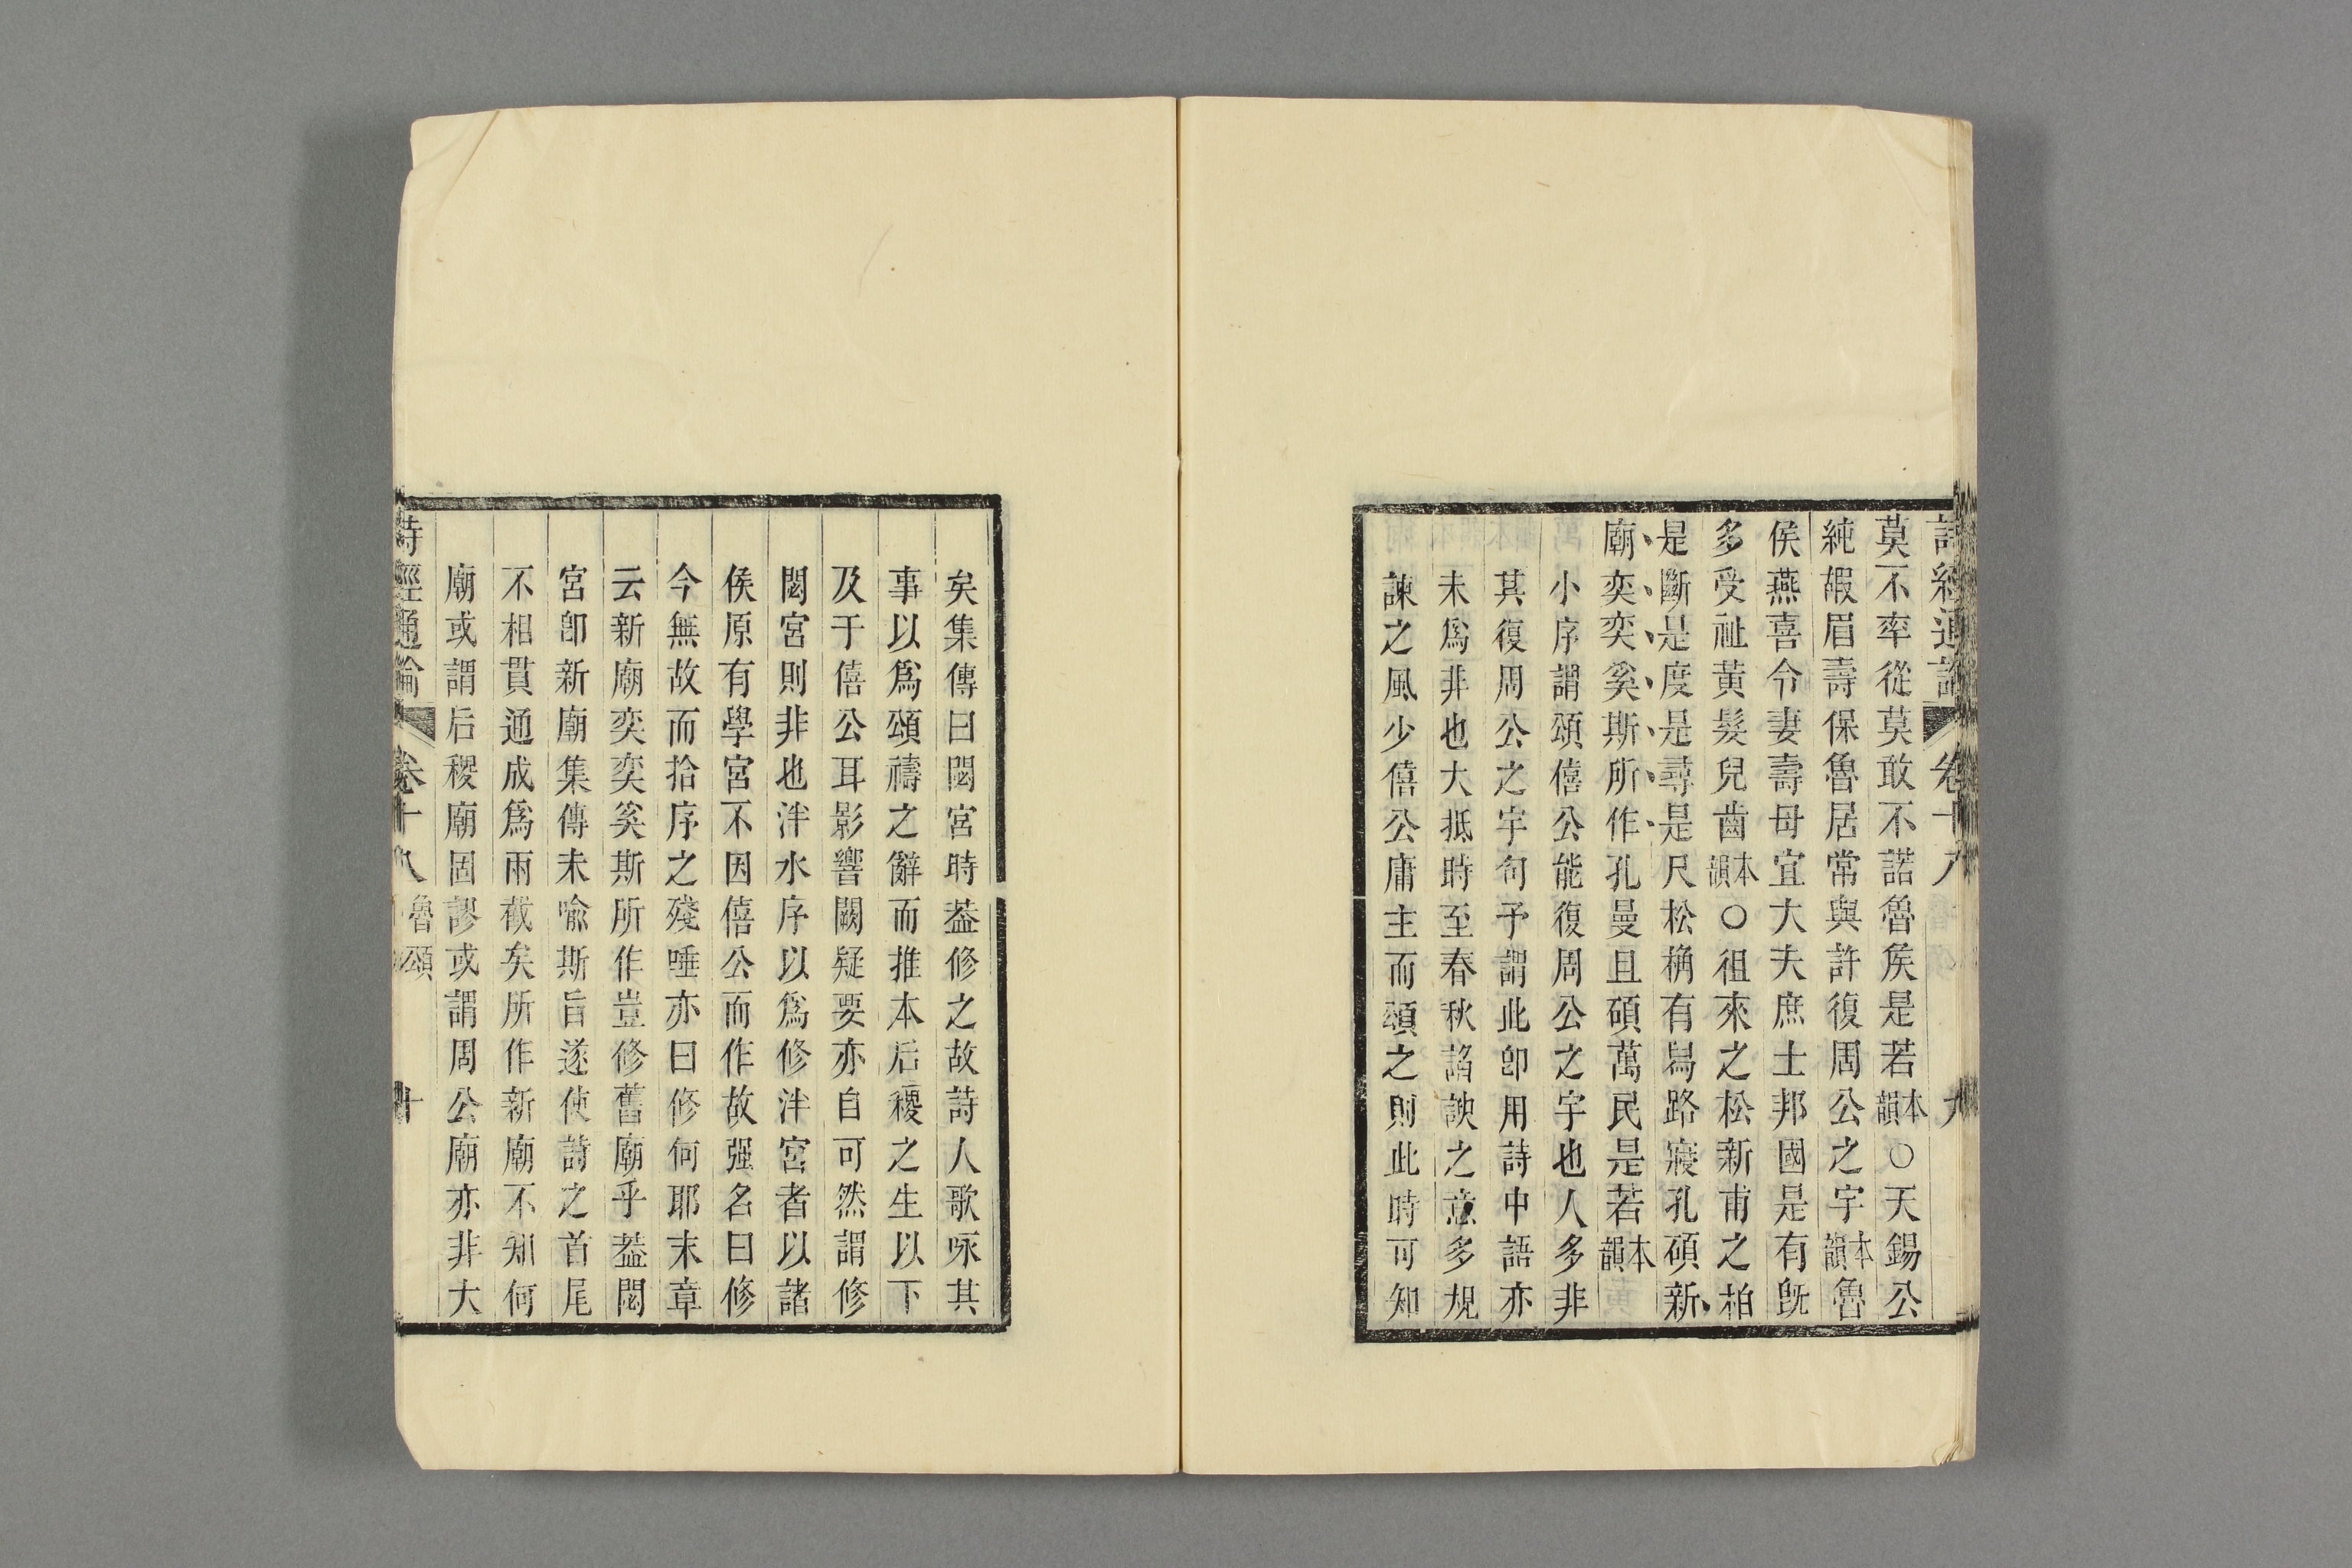 詩經通論 卷十八 九
莫不率從莫敢不諾魯矦是若本韻○天錫公
純嘏眉壽保魯居常與許復周公之宇本韻魯
侯燕喜令妻壽母宜大夫庶士邦國是有旣
多受祉黃髮兒齒本韻○徂來之松新甫之柏
是斷是度是尋是尺松桷有舄路寢孔碩新
廟奕奕奚斯所作孔曼且碩萬民是若本韻
小序謂頌僖公能復周公之宇也人多非
其復周公之宇句予謂此卽用詩中語亦
未爲非也大抵時至春秋諂諛之意多規
諫之風少僖公庸主而頌之則此時可知
矣集傳曰閟宮時葢修之故詩人歌咏其
事以爲頌禱之辭而推本后稷之生以下
及于僖公耳影響闕疑要亦自可然謂修
閟宮則非也泮水序以爲修泮宮者以諸
侯原有學宮不因僖公而作故强名曰修
今無故而拾序之殘唾亦曰修何耶末章
云新廟奕奕奚斯所作豈修舊廟乎葢閟
宮卽新廟集傳未喻斯旨遂使詩之首尾
不相貫通成爲兩截矣所作新廟不知何
廟或謂后稷廟固謬或謂周公廟亦非大
詩經通論 卷十八 魯頌 十